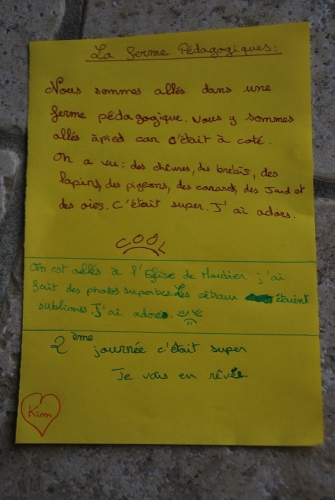 La ferme Pédagogiques:
Nous sommes allés dans une
ferme pédagogique. Nous y sommes
allés àpied car c'était à coté.
On a vu: des chèvres, des brebis, des
lapins, des pigeons, des canards, des Jard et
des oies. C'était super. J'ai adores.
COOL
On est allés à l'Eglise de Moutier j'ai
fait des photos superbes. Les vitraux étaient
sublimes. J'ai adores.
2ème journée c'était super
Je vais en rêvée
Kim